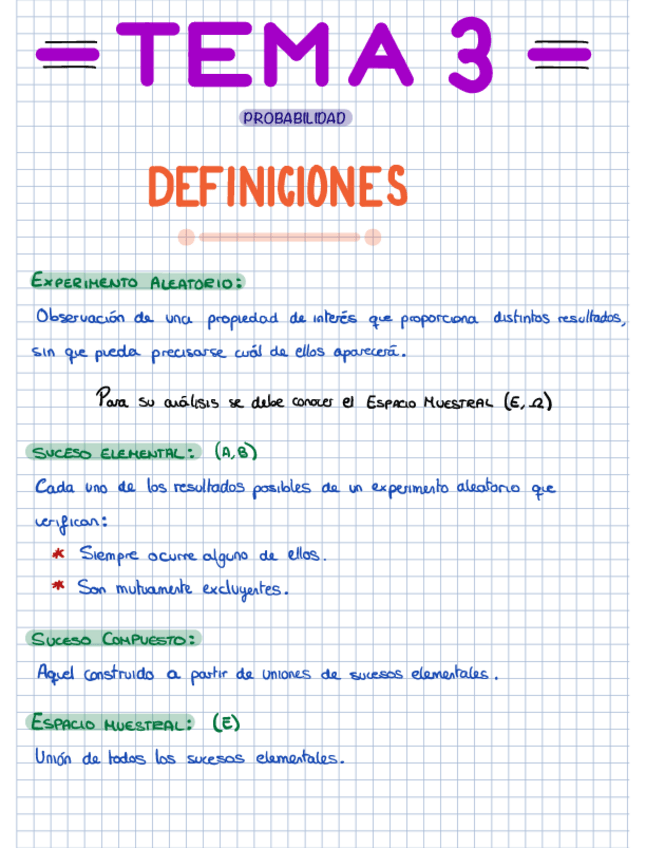 = TEMA 3 =
PROBABILIDAD
DEFINICIONES
EXPERIMENTO ALEATORIO:
Observación de una propiedad de interés que proporciona distintos resultados,
sin que pueda precisarse cuál de ellos aparecerá.
Para su análisis se debe conocer el ESPACIO MUESTRAL (E, Ω)
SUCESO ELEMENTAL: (A, B)
Cada uno de los resultados posibles de un experimento aleatorio que
verifican:
* Siempre ocurre alguno de ellos.
* Son mutuamente excluyentes.
SUCESO COMPUESTO:
Aquel construido a partir de uniones de sucesos elementales.
ESPACIO MUESTRAL: (E)
Unión de todos los sucesos elementales.